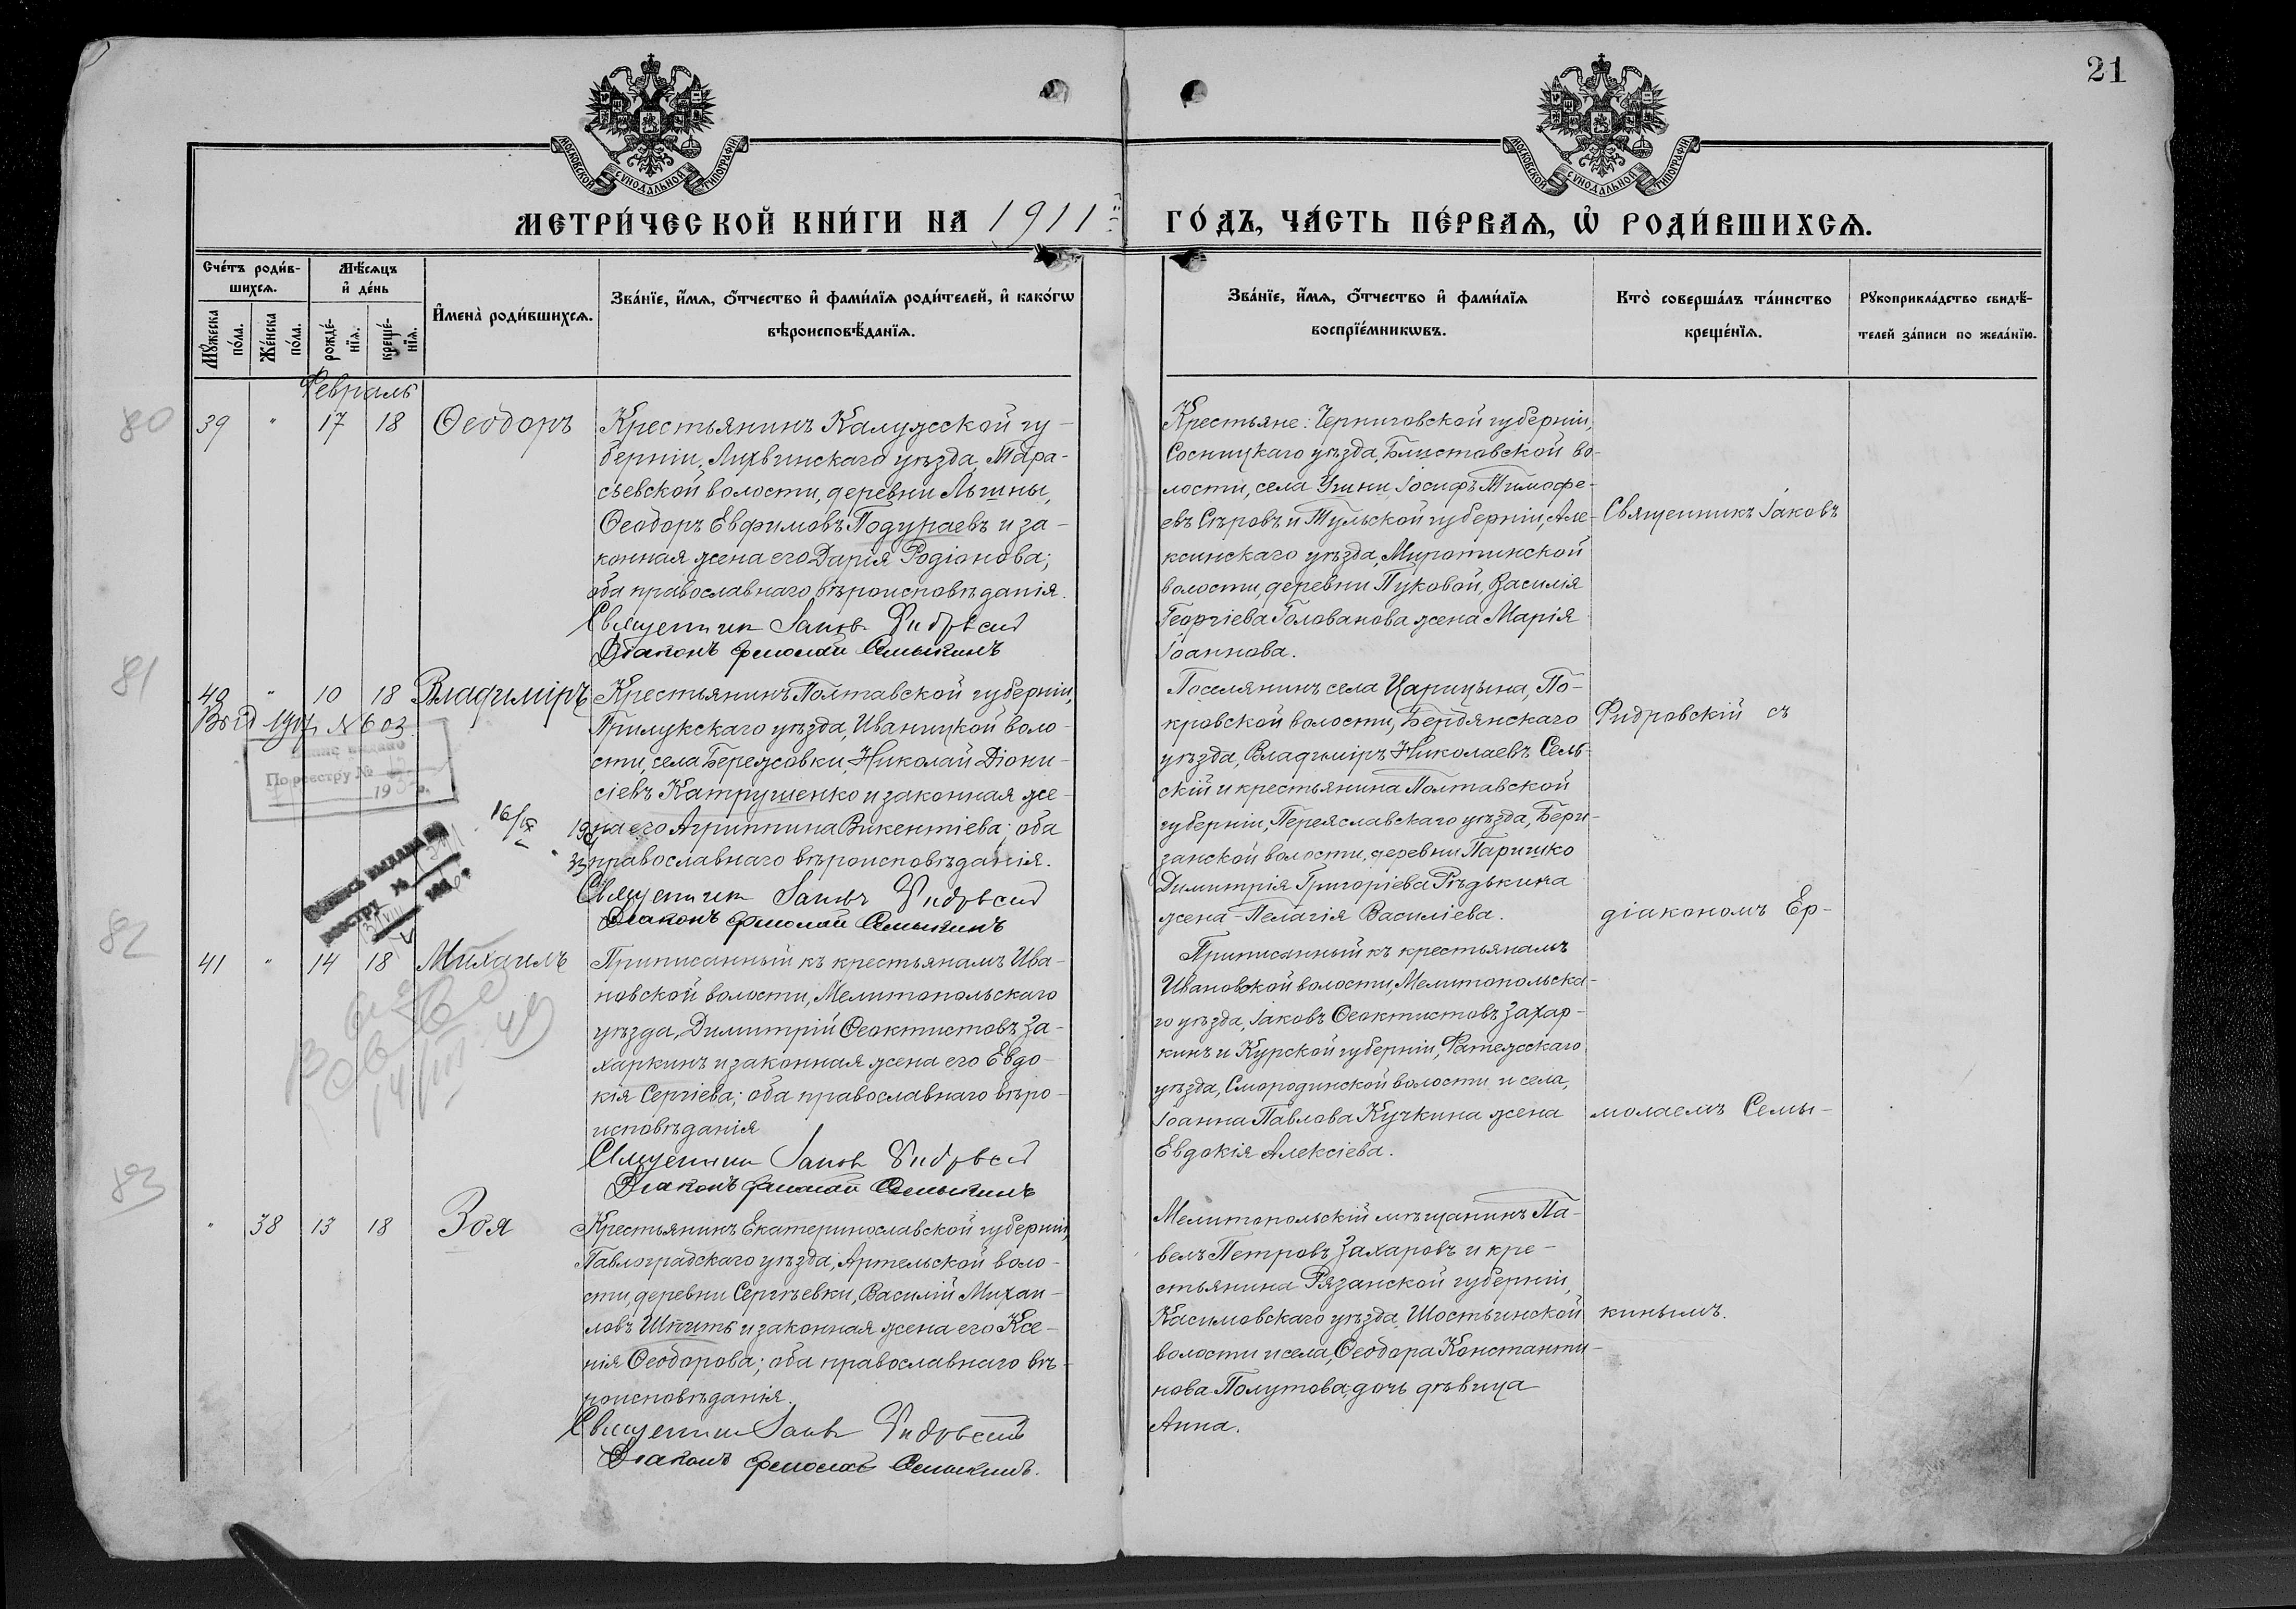 21
МОСКОВСКОЙ СѴНОДАЛЬНОЙ ТИПОГРАФІИ
МОСКОВСКОЙ СѴНОДАЛЬНОЙ ТИПОГРАФІИ
МЕТРИ́ЧЕСКОЙ КНИ́ГИ НА 1911 ГО́ДЪ, ЧА́СТЬ ПЕ́РВАѦ, Ѡ҆ РОДИ́ВШИХСѦ.
Сче́тъ роди́в-
шихсѧ.
Мꙋ́жеска по́ла.
Же́нска по́ла.
Мѣ́сѧцъ
и҆ де́нь
рожде́-
нїѧ.
креще́-
нїѧ.
И҆мена̀ роди́вшихсѧ.
Зва́нїе, и҆́мѧ, ѻ҆́тчество и҆ фами́лїѧ роди́телей, и҆ како́гѡ
вѣроисповѣ́данїѧ.
Зва́нїе, и҆́мѧ, ѻ҆́тчество и҆ фами́лїѧ
воспрїе́мникѡвъ.
Кто̀ соверша́лъ та́инство
креще́нїѧ.
Рꙋкоприкла́дство свидѣ́-
телей за́писи по жела́нїю.
Февраль
80
39 " 17 18 Ѳеодоръ
Крестьянинъ Калужской гу-
берніи, Лихвинскаго уѣзда, Тара-
сьевской волости, деревни Льгины,
Ѳеодоръ Евфимовъ Подураевъ и за-
конная жена его Дарія Родіонова;
оба православнаго вѣроисповѣданія.
Священник Іаков
Діаконъ Ермолай Семыкинъ
Крестьяне: Черниговской губерніи,
Сосницкаго уѣзда, Блистовской во-
лости, села Ушни, Іосифъ Тимофе-
евъ Сѣровъ и Тульской губерніи, Але-
ксинскаго уѣзда, Миротинской
волости, деревни Пуковой, Василія
Георгіева Голованова жена Марія
Іоаннова.
Священникъ Іаковъ
81
40 " 10 18 Владиміръ
1917 № 603
По реестру №
19 р.
16/IX
Крестьянинъ Полтавской губерніи,
Прилукскаго уѣзда, Иваницкой воло-
сти, села Бережовки, Николай Діони-
сіевъ Катрушенко и законная же-
на его Агриппина Викентіева; оба
православнаго вѣроисповѣданія.
Священник Іаковъ
Діаконъ Ермолай Семыкинъ
Поселянинъ села Царицына, По-
кровской волости, Бердянскаго
уѣзда, Владиміръ Николаевъ Сель-
скій и крестьянина Полтавской
губерніи, Переяславскаго уѣзда, Бери-
занской волости, деревни Паришко
Димитрія Григоріева Рѣдькина
жена - Пелагія Василіева.
Фидровскій съ
діакономъ Ер-
82
41 " 14 18 Михаилъ
Приписанный къ крестьянамъ Ива-
новской волости, Мелитопольскаго
уѣзда, Димитрій Ѳеоктистовъ За-
харкинъ и законная жена его Евдо-
кія Сергіева; оба православнаго вѣро-
исповѣданія
Священник Іаков
Діаконъ Ермолай Семыкинъ
Приписанный къ крестьянамъ
Ивановской волости, Мелитопольска-
го уѣзда, Іаковъ Ѳеоктистовъ Захар-
кинъ и Курской губерніи, Фатежскаго
уѣзда, Смородинской волости и села,
Іоанна Павлова Кучкина жена
Евдокія Алексіева.
молаемъ Семы-
83
" 38 13 18 Зоя
Крестьянинъ Екатеринославской губерніи,
Павлоградскаго уѣзда, Артельской воло-
сти, деревни Сергѣевки, Василій Михаи-
ловъ Шпить и законная жена его Ксе-
нія Ѳеодорова; оба православнаго вѣ-
роисповѣданія.
Священник Іаков
Діаконъ Ермолай Семыкинъ.
Мелитопольскій мѣщанинъ Па-
велъ Петровъ Захаровъ и кре-
стьянина Рязанской губерніи,
Касимовскаго уѣзда, Шостьинской
волости и села, Ѳеодора Константи-
нова Полутова, дочь дѣвица
Анна.
кинымъ.